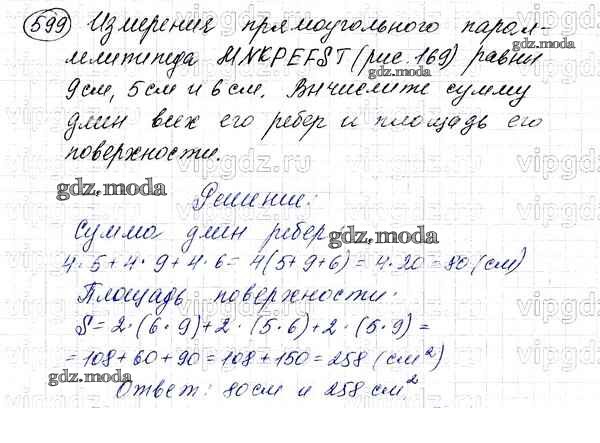 599 Измерения прямоугольного парал-
лелипипеда MNKPEFST (рис. 169) равны
9 см, 5 см и 6 см. Вычислите сумму
длин всех его ребер и площадь его
поверхности.
Решение:
Сумма длин ребер:
4·5+4·9+4·6=4(5+9+6)=4·20=80 (см)
Площадь поверхности:
S=2·(6·9)+2·(5·6)+2·(5·9)=
=108+60+90=108+150=258 (см²)
Ответ: 80 см и 258 см²
gdz.moda
gdz.moda
gdz.moda
gdz.moda
gdz.moda
gdz.moda
vipgdz.ru